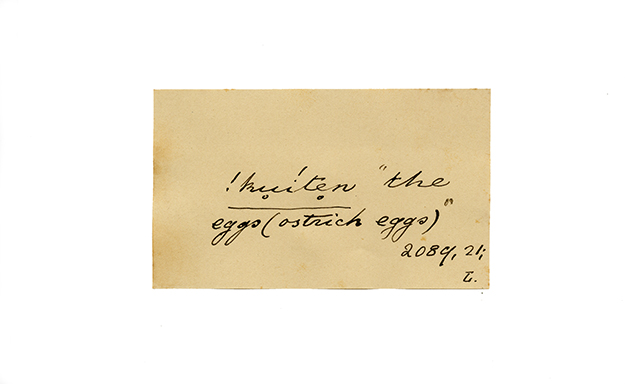 !kúiten "the
eggs (ostrich eggs)"
2089, 21;
L.